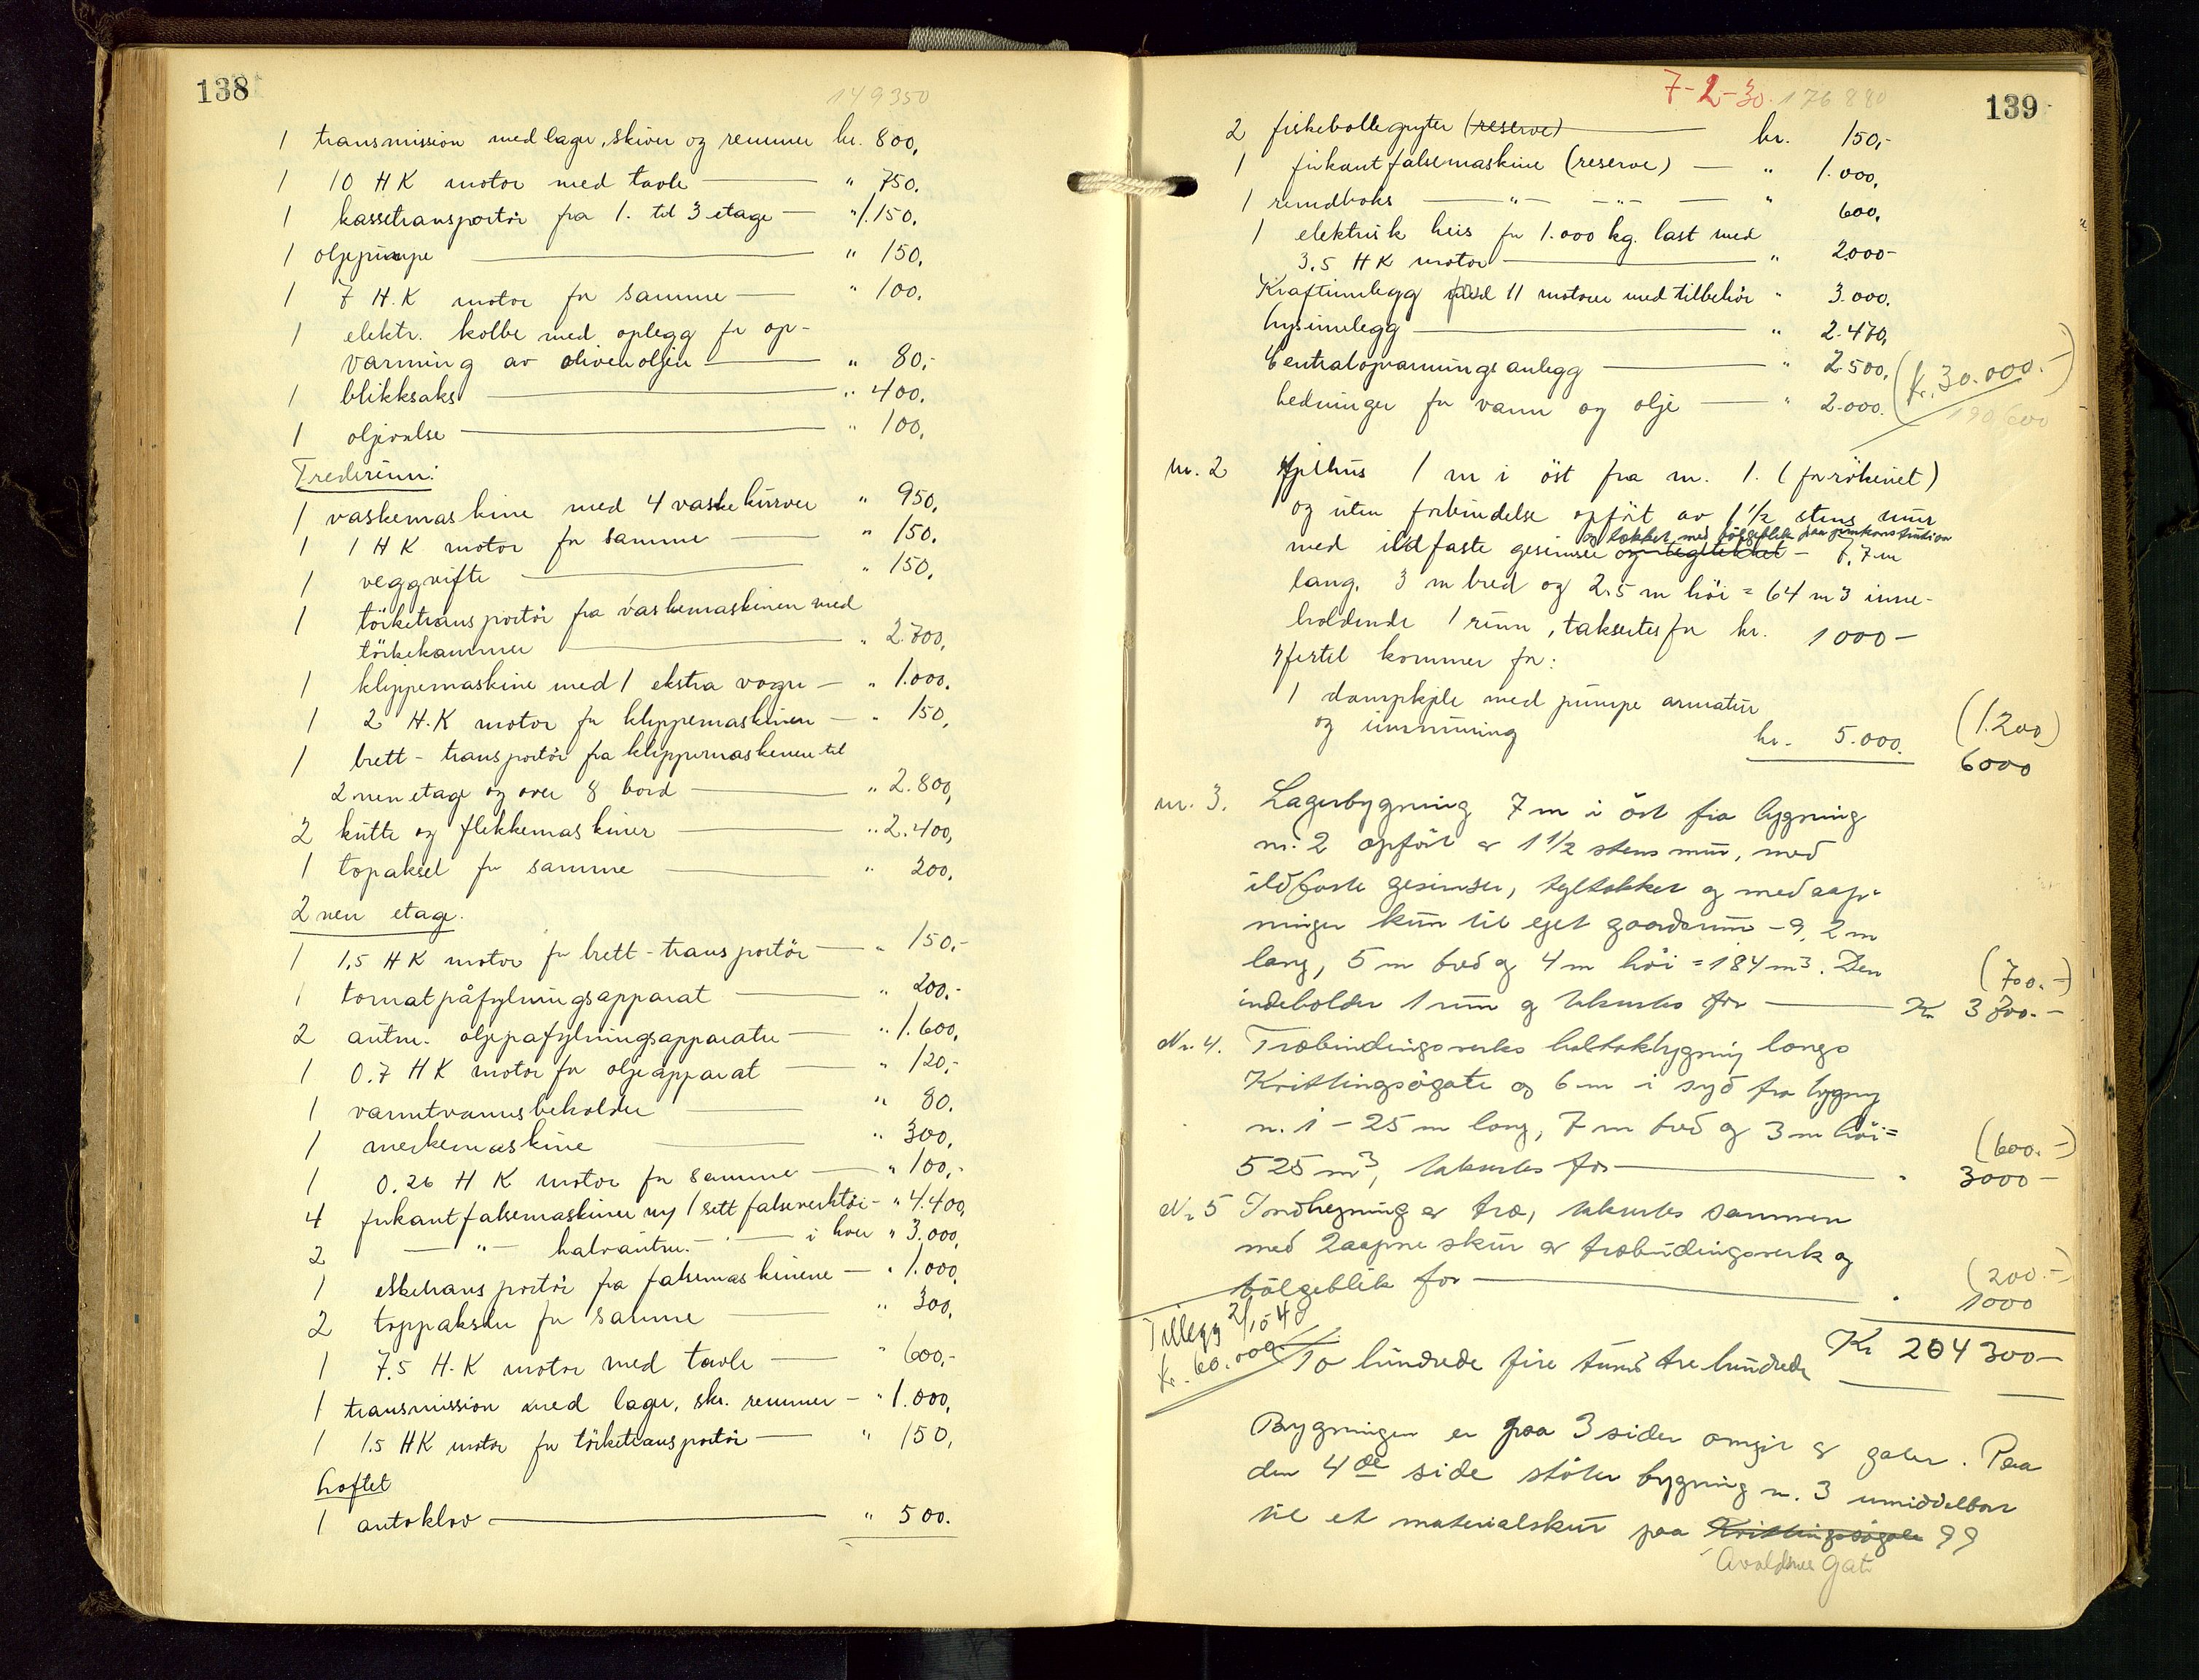 138
149350
1 transmission med lager, skiver og remmer kr. 800,
1 10 HK motor med tavle — " 750.
1 kassetransportör fra 1. til 3 etage — " 1.150.
1 oljepumpe — " 150,
1 7 H.K motor for samme — " 100,
1 elektr. kolbe med oplegg for op-
varming av olivenoljen — " 80,-
1 blikksaks — " 400,
1 oljevelse — " 100,
Trederum:
1 vaskemaskine med 4 vaskekurver " 950,
1 1 HK motor for samme — " 150,
1 veggvifte — " 150,
1 törketransportör fra vaskemaskinen med
törkekammer — " 2.700,
1 klippemaskine med 1 ekstra vogn — " 1.000,
1 2 H.K motor for klippemaskinen — " 150,
1 brett-transportör fra klippemaskinen til
2nen etage og over 8 bord — " 2.800,
2 kutte og flekkemaskiner — " 2.400,
1 topaksel for samme — " 200,
2nen etage.
1 1,5 HK motor for brett-transportör — " 150,-
1 tomatpåfylningsapparat — " 200,-
2 autm. oljepafylningsapparater — " 1.600,
1 0.7 HK motor for oljeapparat — " 120,-
1 varmtvannsbeholder — " 80.
1 merkemaskine — " 300,
1 0.26 HK motor for samme — " 100,-
4 firkant falsemaskiner m/ 1 sett falseverktöi — " 4.400,
2 — " — halvautm. — " — i hver " 3.000,
1 esketransportör fra falsemaskinene — " 1.000,
2 toppaksler for samme — " 300,
1 7.5 H.K motor med tavle — " 600,-
1 transmission med lager, skr. remmer — " 1.000,
1 1.5 HK motor for törketransportör — " 150,
Loftet
1 autoklav — " 500.
7-2-30. 176880
139
2 fiskebollegryter (reserve) — kr. 150,-
1 firkant falsemaskine (reserve) — " 1.000,
1 rundboks — " — — " — " 600,
1 elektrisk heis for 1.000 kg. last med
3,5 HK motor — " 2000-
Kraftinnlegg med 11 motorer med tilbehör " 3.000.
Lysinnlegg — " 2.470,
Centralopvarmingsanlegg — " 2.500,
(kr. 30.000.-)
Ledninger for vann og olje — " 2.000.
190600
nr. 2 Fyrhus 1 m i öst fra nr. 1. (for rökeriet)
og uten forbindelse opfört av 1½ stens mur
og tækket med bölgeblik paa jernkonstruktion
med ildfaste gesimser og tegltekket - 8,7 m
lang, 3 m bred og 2.5 m höi = 64 m3 inne-
holdende 1 rum, takseres for kr. 1000-
Hertil kommer for:
1 dampkjele med pumpe armatur
og innmuring kr. 5.000.
(1.200)
6000
nr. 3. Lagerbygning 7 m i öst fra bygning
nr. 2 opfört av 1½ stens mur, med
ildfaste gesimser, tegltækket og med aap-
ninger kun til eget gaardsrum - 9,2 m
lang, 5 m bred og 4 m höi = 184 m³. Den
(700.-)
indeholder 1 rum og takseres for — Kr 3700.-
Nr. 4. Træbindingsverks halvtaksbygning langs
Kvitsingsögate og 6 m i syd fra bygning
nr. 1 - 25 m lang, 7 m bred og 3 m höi =
(600.-)
525 m³, takseres for — " 3000-
Nr 5 Indhegning av træ, takseres sammen
med 2 aapne skur av træbindingsverk og
(200.-)
bölgeblik for — " 1000
Tillegg 2/10 48
kr. 60.000.-
Kr 204300-
To hundrede fire tusind tre hundrede
Bygningen er paa 3 sider omgit av gater. Paa
den 4de side stöter bygning nr. 3 umiddelbar
til et materialskur paa Kvitsingsögate 99
Avaldsnes Gate